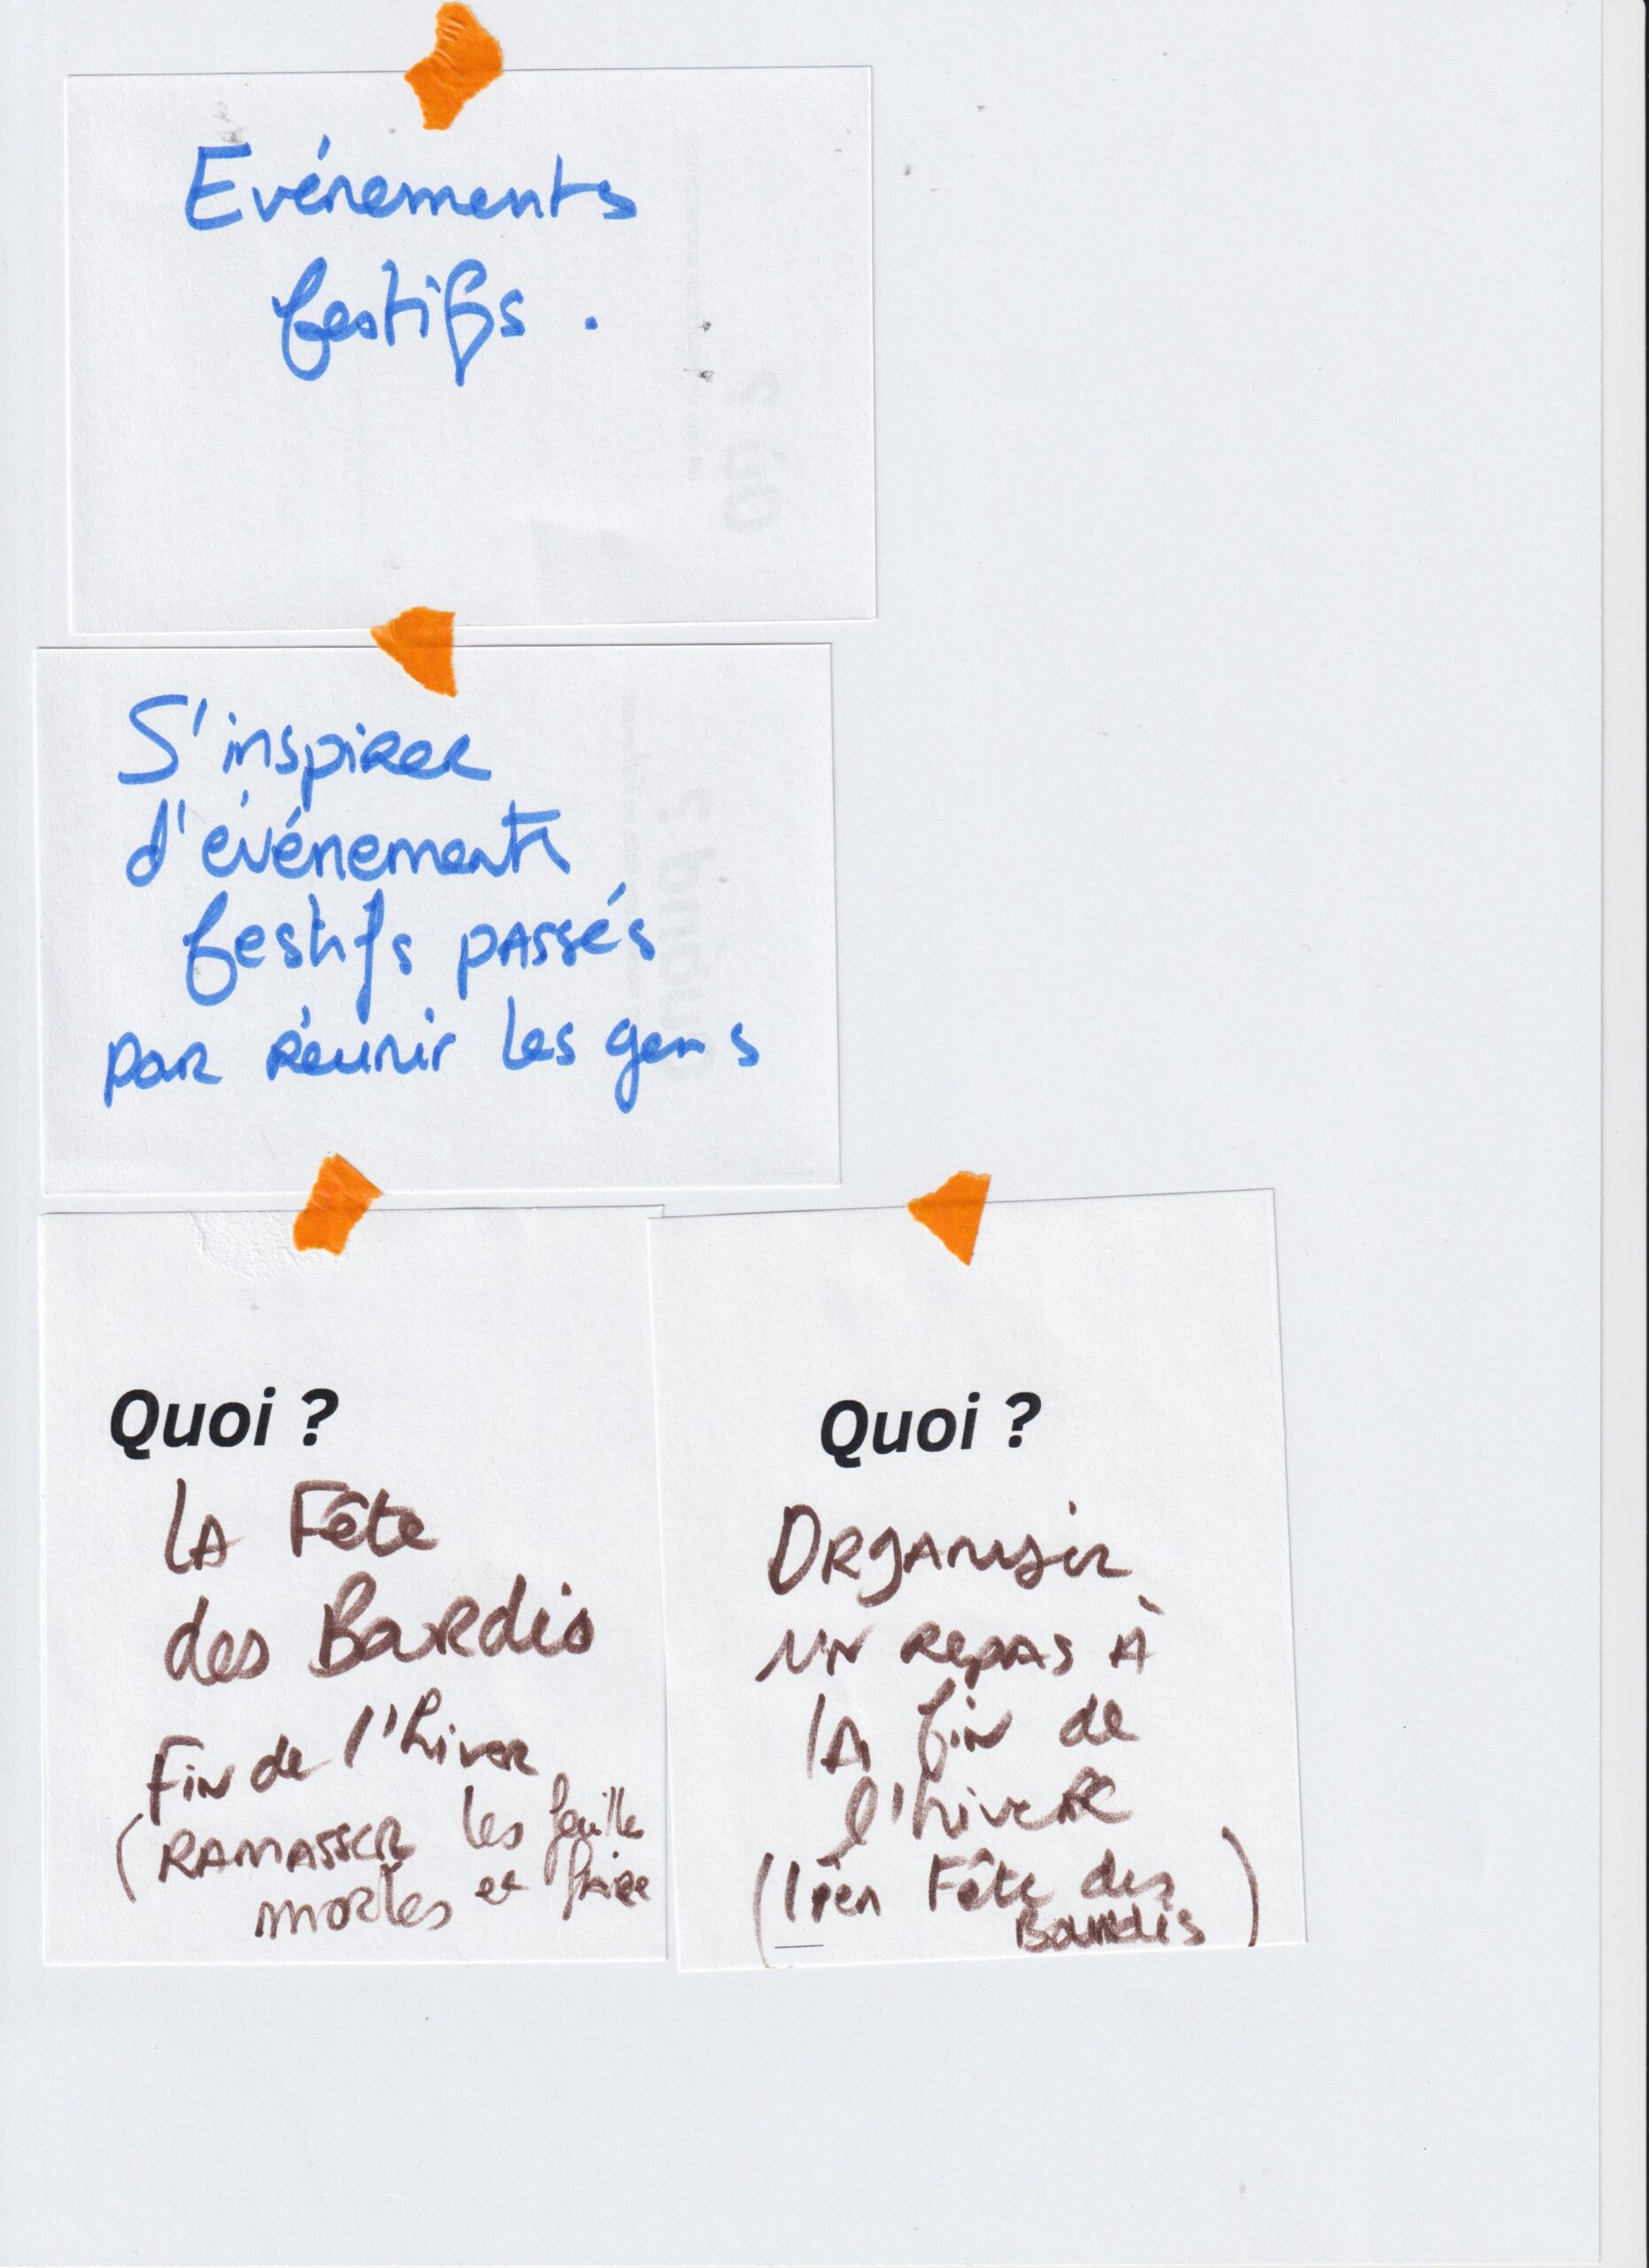 Evénements
festifs.
S'inspirer
d'événements
festifs passés
par réunir les gens
Quoi ?
La Fête
des Bardis
Fin de l'hiver
(RAMASSER les feuilles
mortes et faire
Quoi ?
ORGANISER
UN REPAS À
LA fin de
l'hiver
(lien Fête des
Bardis)